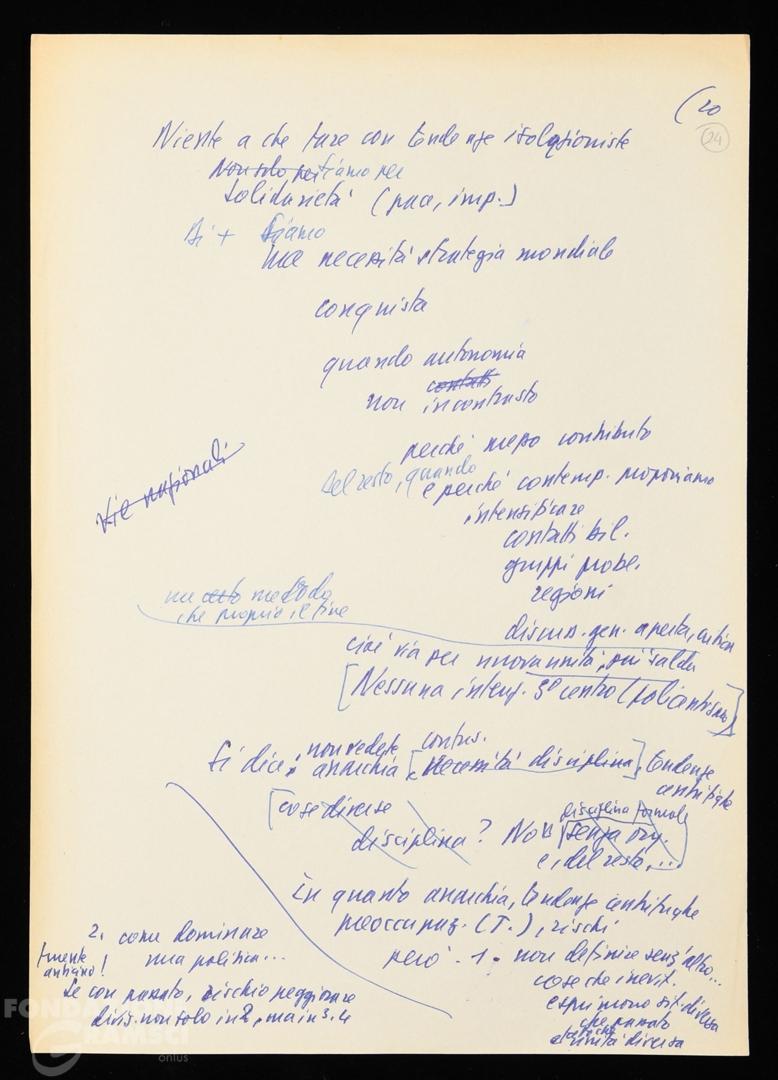 (20
24
Niente a che fare con tendenze isolazioniste
Non solo siamo per
solidarietà (pace, imp.)
Di + siamo
necessità strategia mondiale
conquista
quando autonomia
contatti
non in contrasto
perché nesso contributo
Del resto, quando
e perché contemp. proponiamo
intensificare
contatti bil.
gruppi probl.
regioni
Vie nazionali
un certo metodo
che proprio il fine
discuss. gen. aperta, critica
cioè via per nuova unità, più salda
[Nessuna intenz. 3º centro (policentrismo)]
non vedete contus.
Si dice: anarchia, [necessità disciplina], tendenze
centrifughe
[cose diverse
disciplina formale
disciplina? No senza org.
e, del resto, ...
In quanto anarchia, tendenze centrifughe
preoccupaz. (T.), rischi
però 1. non definire senz'altro...
cose che inevit.
esprimono sit. diversa
che passato
e unità diversa
2. come dominare
una politica...
Se con passato, rischio peggiorare
divis. non solo in 2, ma in 3, 4
FONDAZIONE
GRAMSCI
onlus